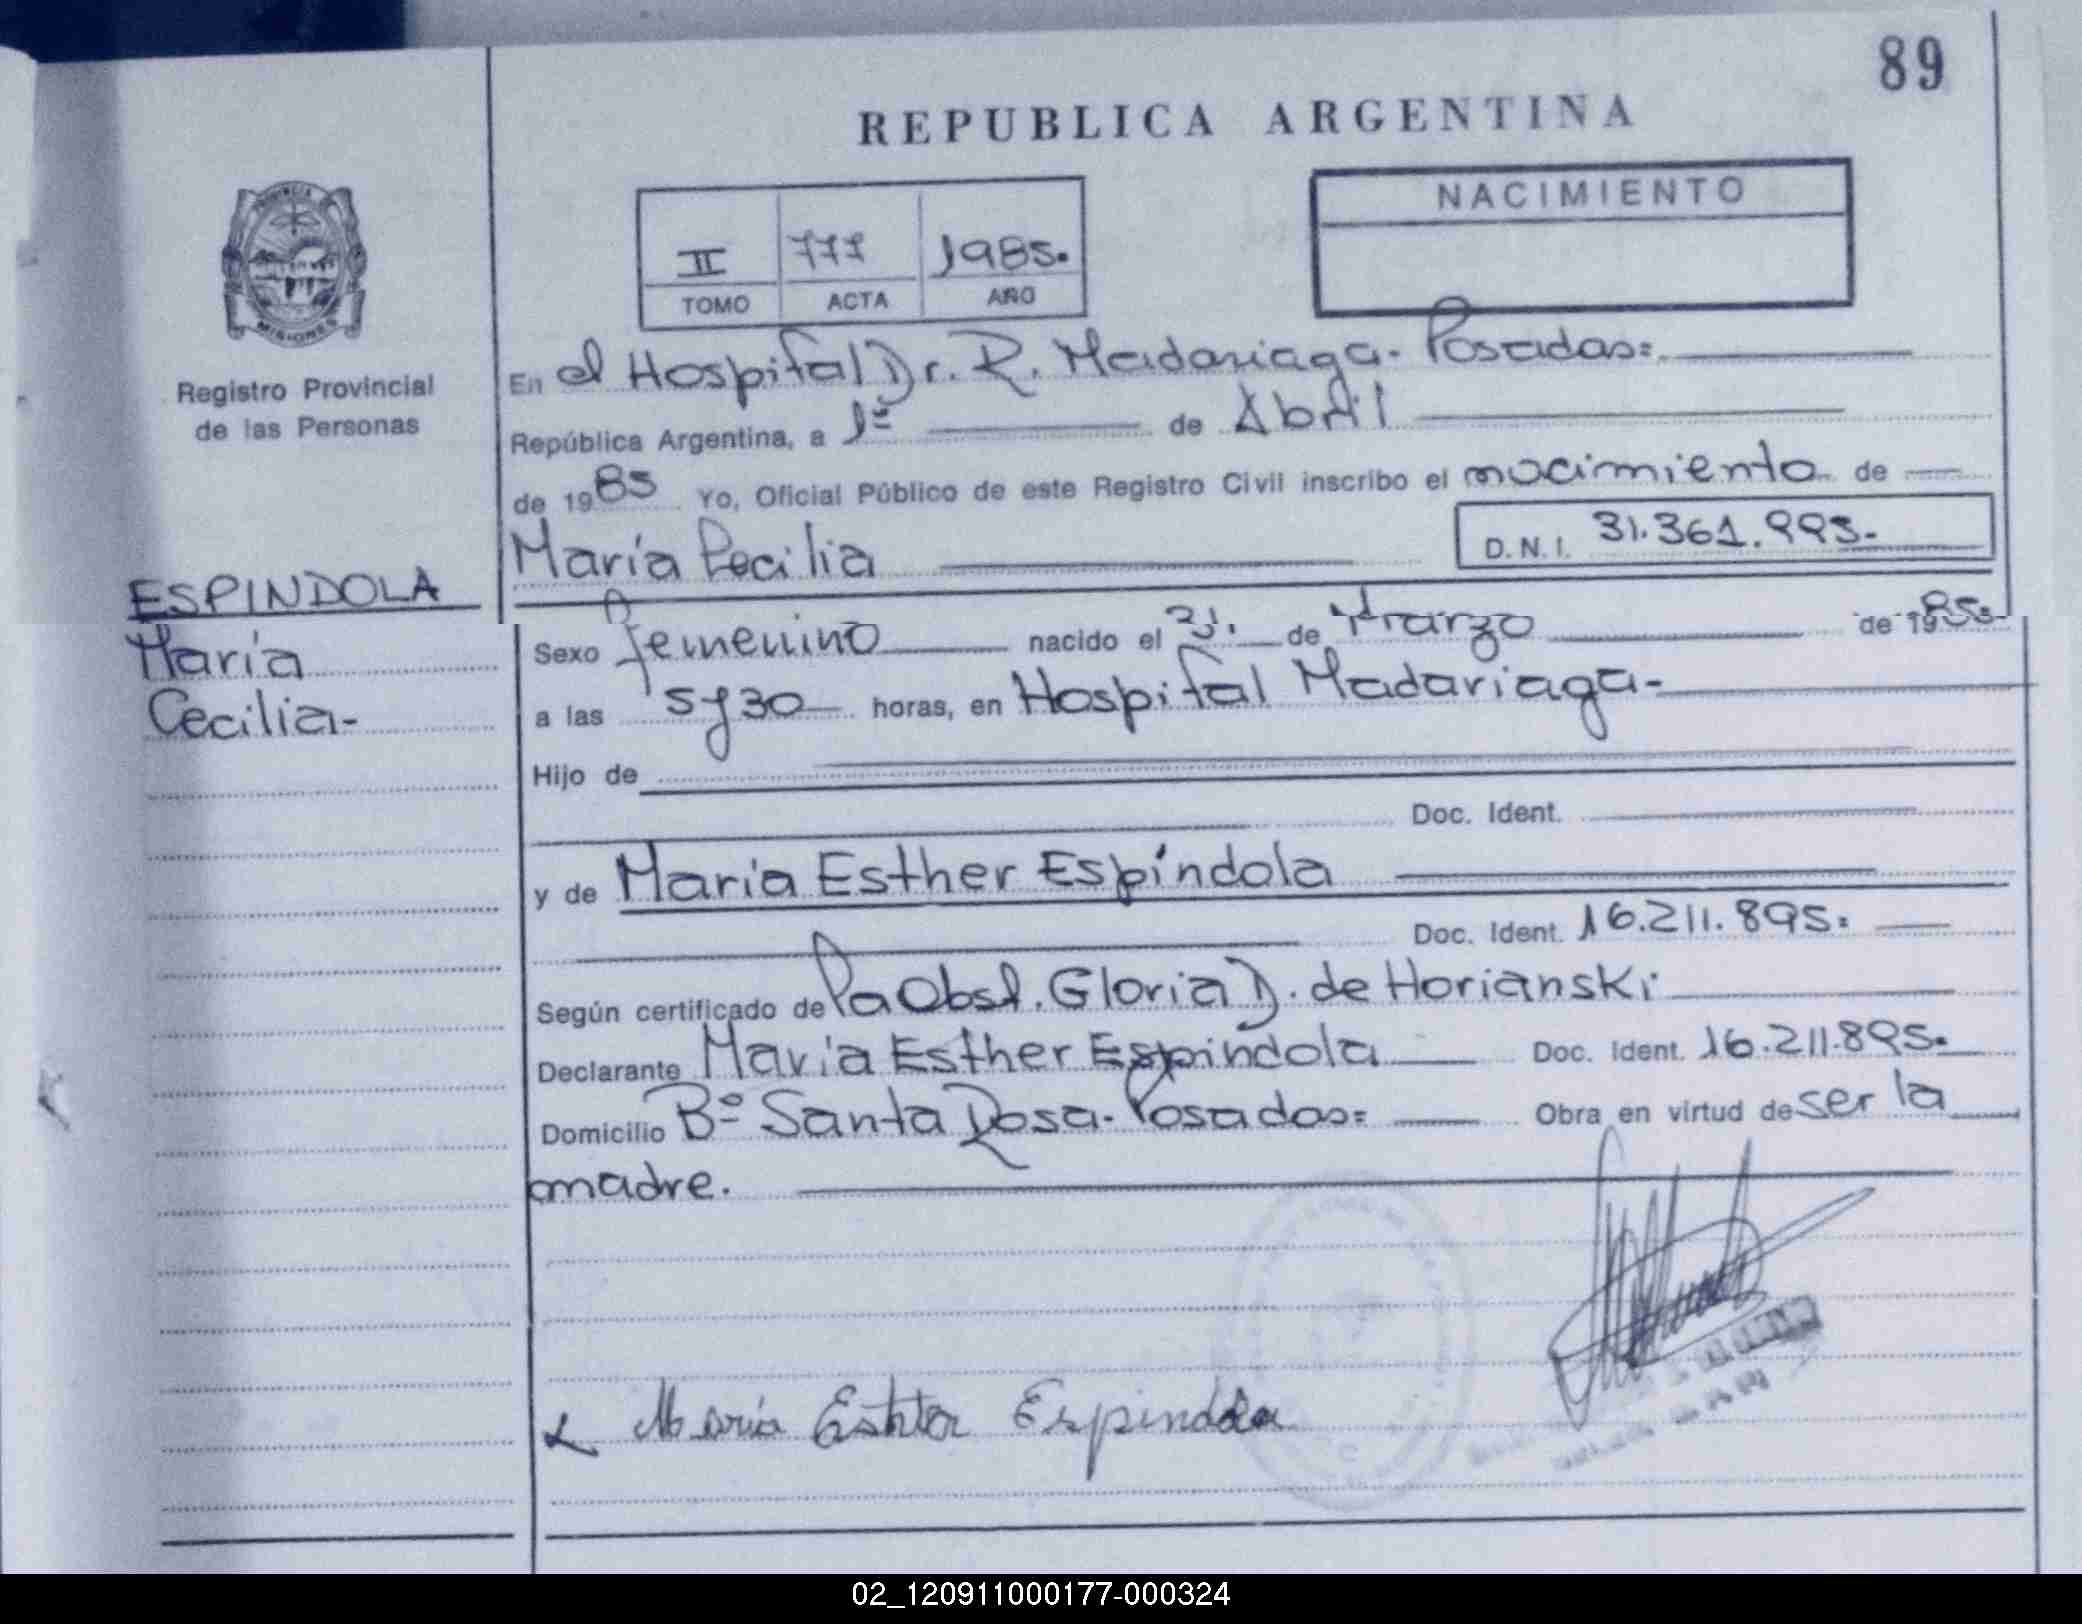 89
REPUBLICA ARGENTINA
NACIMIENTO
II 777 1985.
TOMO ACTA AÑO
PROVINCIA
MISIONES
Registro Provincial
de las Personas
En el Hospital Dr. R. Madariaga. Posadas=
República Argentina, a 1º de Abril
de 1985 Yo, Oficial Público de este Registro Civil inscribo el nacimiento de
María Cecilia D.N.I. 31.361.993.-
ESPINDOLA
María
Cecilia-
Sexo femenino nacido el 31. de Marzo de 1985=
a las 5 y 30 horas, en Hospital Madariaga-
Hijo de
Doc. Ident.
y de María Esther Espíndola
Doc. Ident. 16.211.895=
Según certificado de Pa Obst. Gloria D. de Horianski
Declarante María Esther Espindola Doc. Ident. 16.211.895=
Domicilio Bº Santa Rosa- Posadas= Obra en virtud de ser la
madre.
María Esther Espindola
02_120911000177-000324